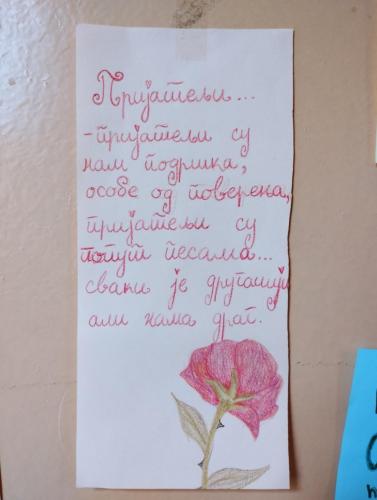 Пријатељи...
-пријатељи су
нам подршка,
особе од поверења,
пријатељи су
попут песама...
сваки је другачији
али нама драг.